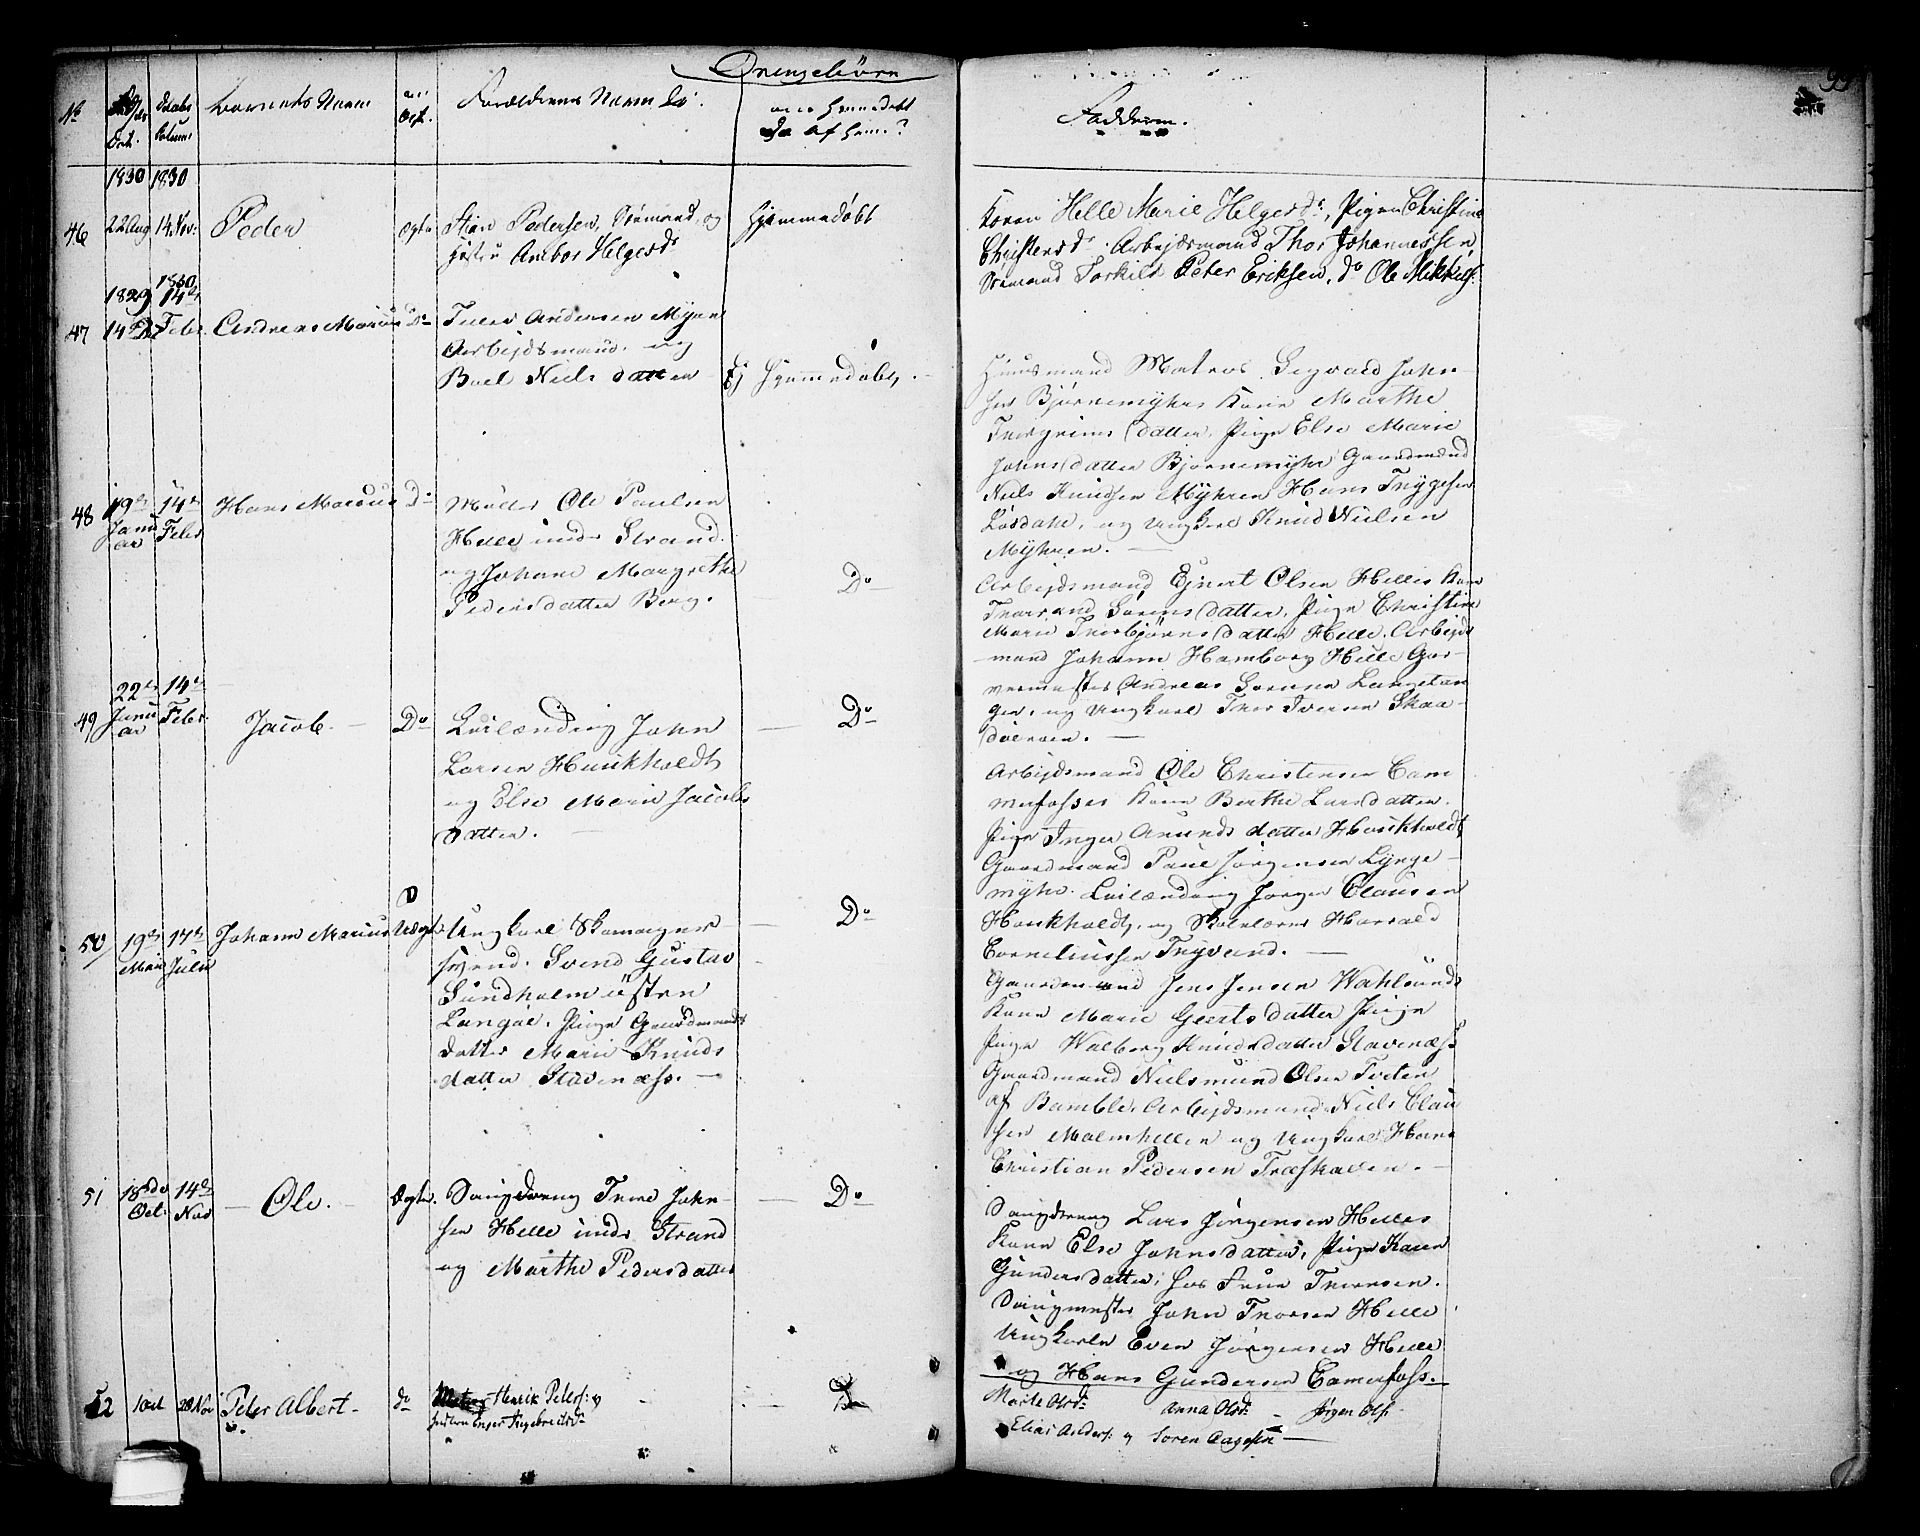 Drengebørn
99
No
Dato
Daabs
Datum
Barnets Navn
om
Ægt.
Forældrenes Navn
om Hjemmedøbt
da af hvem?
Faddere.
1830 1830
46 22 Aug 14 Nov: Peder Ægte
Stian Pedersen, Sømand, og
Hustru Anbor Helgesdr
Hjemmedøbt
Konen Helle Marie Helgesdr, Pigen Christine
Christensdr Arbejdsmand Thor Johannessen
Sømand Torkild Peter Eriksen, do Ole Mikkels.
1829 1830
47 14de 14de Febr. Andreas Marius Do
Andersen Myhren
Arbejdsmand og
Boel Nielsdatter
Ej Hjemmedøbt
Huusmand Matros Segvald John
sen Bjørnemyhrs Kone Marthe
Thorgrims datter, Pige Else Marie
Johnsdatter Bjørnemyhr Gaardmand
Niels Knudsen Myhren Hans Trygesen
og Ungkarl Knud Nielsen
Myhren.
48 19de Janu ar 14de Febr Hans Marius Do
Ole Paulsen
Helle under Strand
og Johane Margrethe
Pedersdatter Berg.
Do
Arbejdsmand Ejvert Olsen Helles Kone
Sørensdatter, Pige Christine
Marie Thorbjørnsdatter Helle. Arbejds
mand Johann Hamborg Helle Gar-
vermester Andreas Sørensen Langetan
gen, og Ungkarl Thor Iversen Skaa-
49 22de Janu ar 14de Febr. Jacob. Do
Leilænding John
Larsen Haukholdt
og Else Marie Jacobs
datter.
Do
Arbejdsmand Ole Christensen Cam
merfosses Kone Berthe Larsdatter.
Pige Inger Amunds datter Haukholdt
Gaardmand Paul Jørgensen Lynge-
myhr. Leilænding Jørgen Clausen
Haukholdt, og Skolelærer Harrald
Corneliussen Tryvand.
50 19de Mai 17de Julii Johann Marius Uægte
Ungkarl Skomager
svend. Svend Gustav
Sundholm østen
Langøe. Pige Gaardmands
datter Marie Knuds
datter Stavenæss.
Do
Gaardmand Jens Jensen Wahlunds
Kone Marie Geertsdatter Pige
Pige Walborg Knudsdatter Stavenæss
Gaardmand Nielsmund Olsen Tveten
af Bamble, Arbejdsmand Niels Clau
sen Malmhellen og Ungkarl Hans
Christian Pedersen Træskaaen.
51 18de Oct. 14de Nov Ole. Ægte.
Daugdreng Thore John-
sen Helle under Strand
og Marthe Pedersdatter
Do
Daugdreng Lars Jørgensen Helles
Kone Else Johnsdatter, Pige Karen
Gundersdatter, hos Frue
Daugmester John Thorsen Helle
Ungkarle Even Jørgensen Helle
og Hans Gundersen Camerfoss.
52 1 Oct 28 Nov Peter Albert do
Henrik Peters: og
Inger Ingebretsdr
Do
Marte Olsdr Anna Olsdr Jørgen Ols.
Elias Anders: og Søren Aagesen